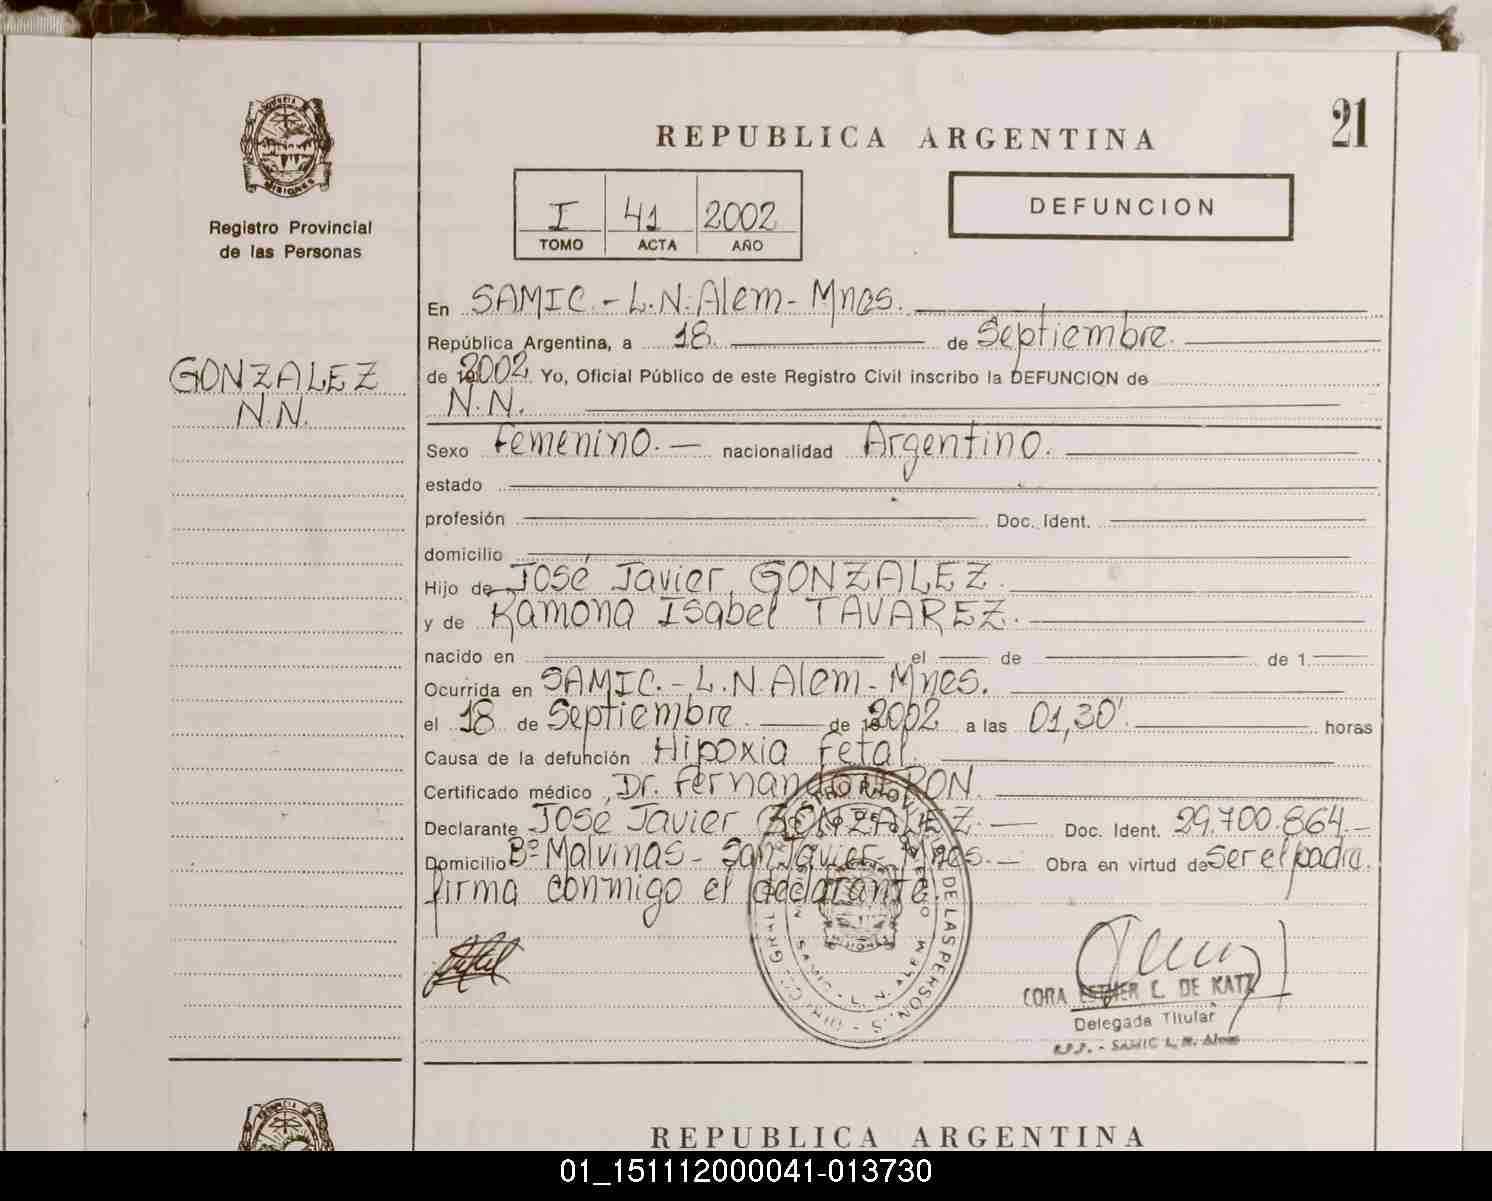 PROVINCIA DE
MISIONES
Registro Provincial
de las Personas
GONZALEZ
N.N.
21
REPUBLICA ARGENTINA
I 41 2002
TOMO ACTA AÑO
DEFUNCION
En SAMIC.- L.N. Alem - Mnes.
República Argentina, a 18. de Septiembre.
de 2002 Yo, Oficial Público de este Registro Civil inscribo la DEFUNCION de
N.N.
Sexo femenino. — nacionalidad Argentino.
estado
profesión Doc. Ident.
domicilio
Hijo de José Javier GONZALEZ.
y de Ramona Isabel TAVAREZ.
nacido en el de de 1
Ocurrida en SAMIC.- L.N. Alem - Mnes.
el 18 de Septiembre. de 2002 a las 01,30'. horas
Causa de la defunción Hipoxia fetal.
Certificado médico Dr. Fernando
Declarante José Javier GONZALEZ.— Doc. Ident. 29.700.864.-
Domicilio Bº Malvinas - San Javier Mnes.— Obra en virtud de ser el padre.
firma conmigo el declarante.
DE LAS PERSONAS
SAMIC - L. N. ALEM
MISIONES
CORA ESTHER L. DE KATZ
Delegada Titular
R.P.P. - SAMIC L. N. Alem
REPUBLICA ARGENTINA
01_151112000041-013730